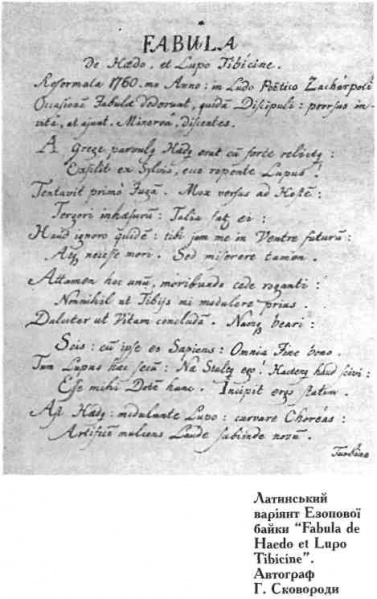 FABULA
de Hædo, et Lupo Tibicine.
Reformata 1760.mo Anno: in Ludo Poëtico
Occasionē Fabulæ dederunt, quidā Discipuli: prorsus in-
vitâ, ut ajunt. Minervâ, discentes.
A Grege parvulꝰ Hædꝰ erat cū forte relictꝰ:
Exsilit ex Sylvis, ecce repente Lupus.
Tentavit primò Fugā. Mox versus ad Hostē:
Tergori inhæsurū: Talia fatꝰ ei:
Haud ignoro quidē: tibi jam me in Ventre futurū:
necesse mori. Sed miserere tamen.
Attamen hoc unū, moribundo cede roganti:
Nonnihil ut Tibijs mi modulere prius.
ut Vitam concludā. beari:
Scis: cū ipse es Sapiens: Omnia Fine bono.
Tum Lupus hæc secū: Næ Stultꝰ ego: haud scivi:
Esse mihi Dotē hanc. Incipit ergo statim.
Hædꝰ: modulante Lupo: curvare Choréas:
Artificē mulcens Laude subinde novū.
Латинський
варіянт Езопової
байки “Fabula de
Haedo et Lupo
Tibicine”.
Автограф
Г. Сковороди